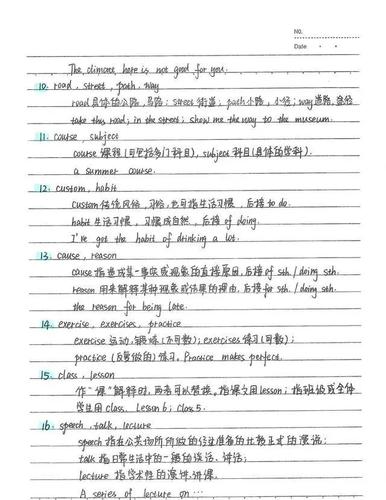 No.
Date
The climate here is not good for you.
10. road, street, path, way
road 具体的公路,马路; street 街道; path 小路,小径; way 道路,途径
take this road; in the street; show me the way to the museum.
11. course, subject
course 课程(可包括多门科目), subject 科目(具体的学科).
a summer course.
12. custom, habit
custom 传统风俗,习俗,也可指生活习惯,后接 to do.
habit 生活习惯,习惯成自然,后接 of doing.
I've got the habit of drinking a lot.
13. cause, reason
cause 指造成某一事实或现象的直接原因,后接 of sth./doing sth.
reason 用来解释某种现象或结果的理由,后接 for sth./doing sth.
the reason for being late.
14. exercise, exercises, practice
exercise 运动,锻炼(不可数); exercises 练习(可数);
practice (反复做的)练习. Practice makes perfect.
15. class, lesson
作"课"解释时,两者可以替换。指课文用 lesson; 指班级或全体
学生用 class. Lesson 6; Class 5.
16. speech, talk, lecture
speech 指在公共场所所做的经过准备的比较正式的演说;
talk 指日常生活中的一般的谈话、讲话;
lecture 指学术性的演讲,讲课.
A series of lecture on ···